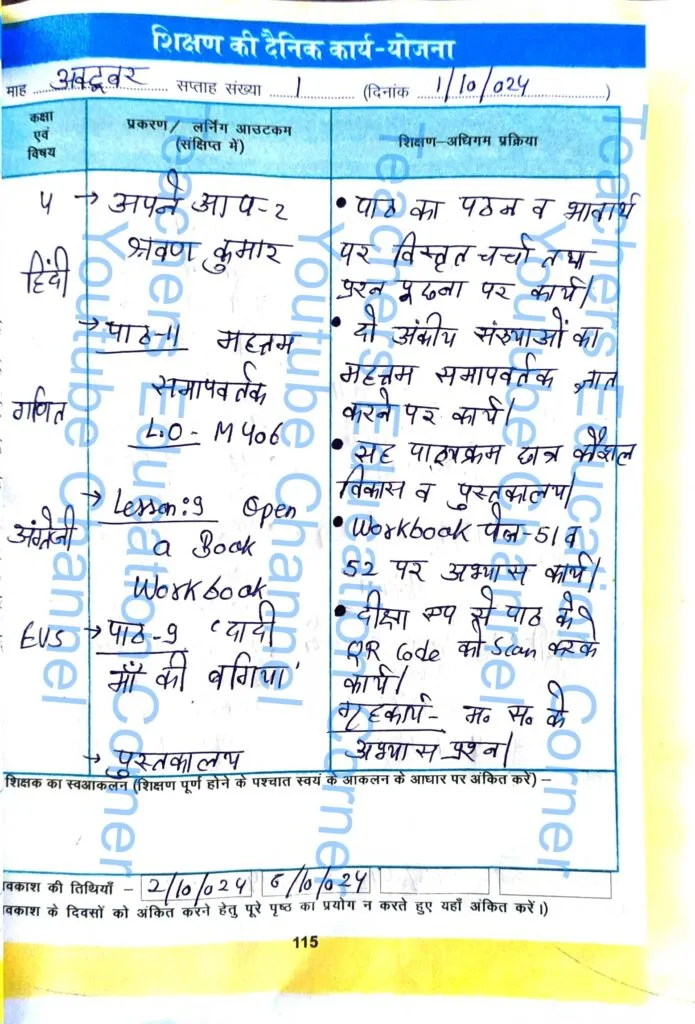 शिक्षण की दैनिक कार्य-योजना
माह अक्टूबर सप्ताह संख्या 1 (दिनांक 1/10/024)
कक्षा एवं विषय
प्रकरण/ लर्निंग आउटकम (संक्षिप्त में)
शिक्षण-अधिगम प्रक्रिया
५ → अपने आप-2
श्रवण कुमार
हिंदी
→ पाठ-11 महत्तम
समापवर्तक
गणित
L.O- M406
→ Lesson:9 Open
अंग्रेजी
a Book
Workbook
EVS → पाठ-9 'दादी
माँ की बगिया'
→ पुस्तकालय
• पाठ का पठन व भावार्थ
पर विस्तृत चर्चा तथा
प्रश्न पूछना पर कार्य।
• दो अंकीय संख्याओं का
महत्तम समापवर्तक ज्ञात
करने पर कार्य।
• सह पाठ्यक्रम छात्र कौशल
विकास व पुस्तकालय।
• Workbook पेज-51 व
52 पर अभ्यास कार्य।
• दीक्षा एप से पाठ के
QR Code को Scan करके
कार्य।
गृहकार्य- म० स० के
अभ्यास प्रश्न।
शिक्षक का स्वआकलन (शिक्षण पूर्ण होने के पश्चात स्वयं के आकलन के आधार पर अंकित करें) –
वकाश की तिथियाँ – 2/10/024 6/10/024
वकाश के दिवसों को अंकित करने हेतु पूरे पृष्ठ का प्रयोग न करते हुए यहाँ अंकित करें।)
115
Teachers Education Corner
Youtube Channel
Teachers Education Corner
Youtube Channel